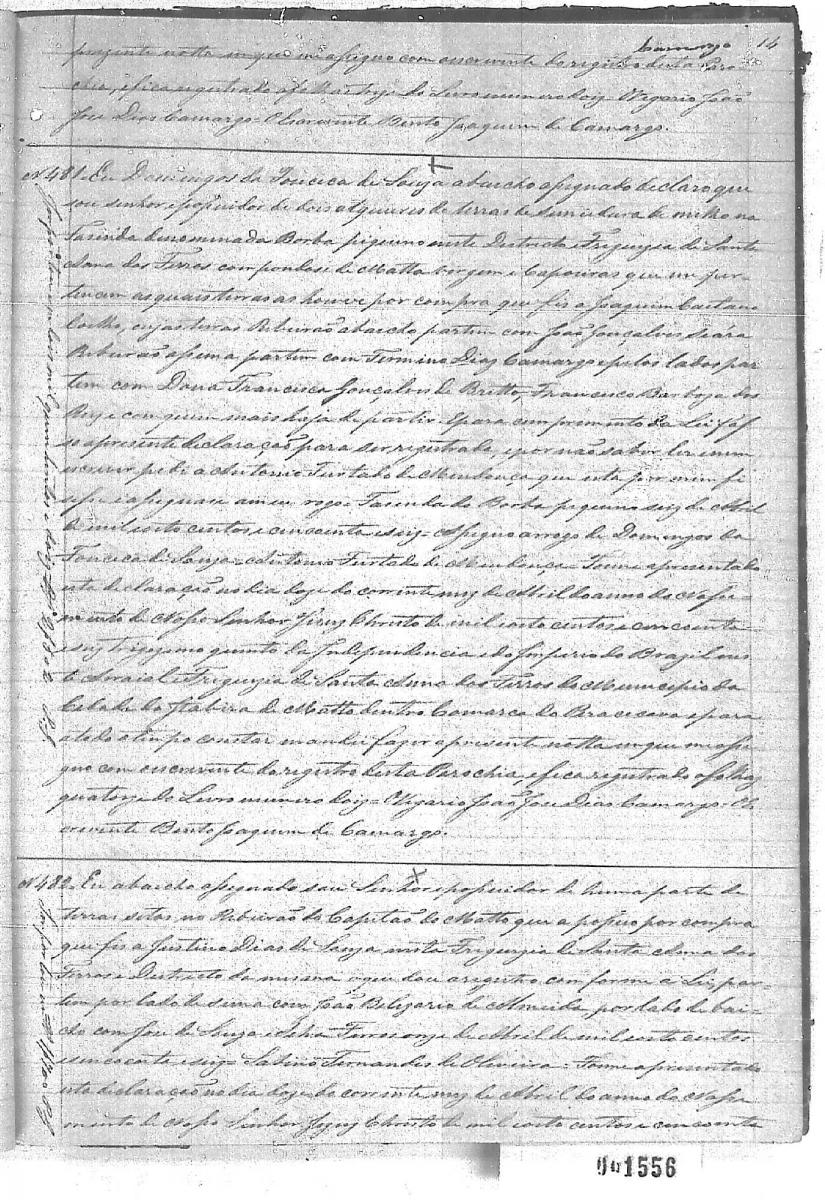 Camargo 14
prezente notta in que me assigno com escrevente do registro desta Paro-
chia, e fica registrado a folhas hoje do Livro numero doiz= Vigario João
Jose Dias Camargo= O Escrevente Bento Joaquim de Camargo.
N 481. Eu Domingos da Fonceca de Souza abaicho assignado declaro que
sou senhor e possuidor de dois alqueires de terras de simiadura de milho na
Fasenda denominada Borba piqueno neste Destricto e Friguezia de Santa
Anna dos Ferros compondose de Matto virgem e Capoeiras que me per-
tencem as quais terras as houve por compra que fis a Joaquim Caetano
Coelho, cujas terras Ribeirão abaicho partem com João Gonçalves Seára
Ribeirão assima partem com Fermino Diaz Camargo e pelos lados par
tem com Dona Francisca Gonçalves de Britto, Francisco Barboza dos
Reyz e com quem mais haja de partir. E para comprimento da Lei faz
se a prezente declaração para ser registrada, e por não saber ler nem
escrever pedi a Antonio Furtado de Mendonça que esta por mim fi
zesse e assignase a meu rogo= Fasenda do Borba piqueno seiz de Abril
de mil oito centos e cincoenta e seiz= Assigno arrogo de Domingos da
Fonceca de Souza= Antonio Furtado de Mendonça= Fonme apresentado
esta declaração no dia doze do corrente mez de Abril do anno do Nasci-
mento de Nosso Senhor Jezuz Christo de mil oito centos e cincoenta
e seiz trigezimo quinto da Independencia e do Imperio do Brazil nes
te Arraial e Friguezia de Santa Anna dos Ferros do Municipio da
Cidade da Itabira de Matto dentro Comarca do Piracicava e para
a todo o tempo constar mandei fazer a prezente notta in que me assi
gno com escrevente do registro desta Parochia, e fica registrado a folhas
quatorze do Livro numero doiz= Vigario João Jose Dias Camargo= O Es
crevente Bento Joaquim de Camargo.
N 482. Eu abaicho assignado sou Senhor e possuidor de huma parte de
terras setas no Ribeirão do Capitão do Matto que a possuo por compra
que fis a Justino Dias de Souza nesta Friguezia de Santa Anna dos
Ferros e Destricto da mesma o que dou a registro comforme a Lei, par-
tem por lado de sima com João Belizario de Almeida, por lado de bai-
cho com Jose de Souza e Silva Ferros onze de Abril de mil oito centos
e sincoenta e seiz= Sabino Fernandes de Oliveira= Fonme apresentado
esta declaração no dia doze do corrente mez de Abril do anno do Nasci
mento de Nosso Senhor Jezuz Christo de mil oito centos e cincoenta
001556